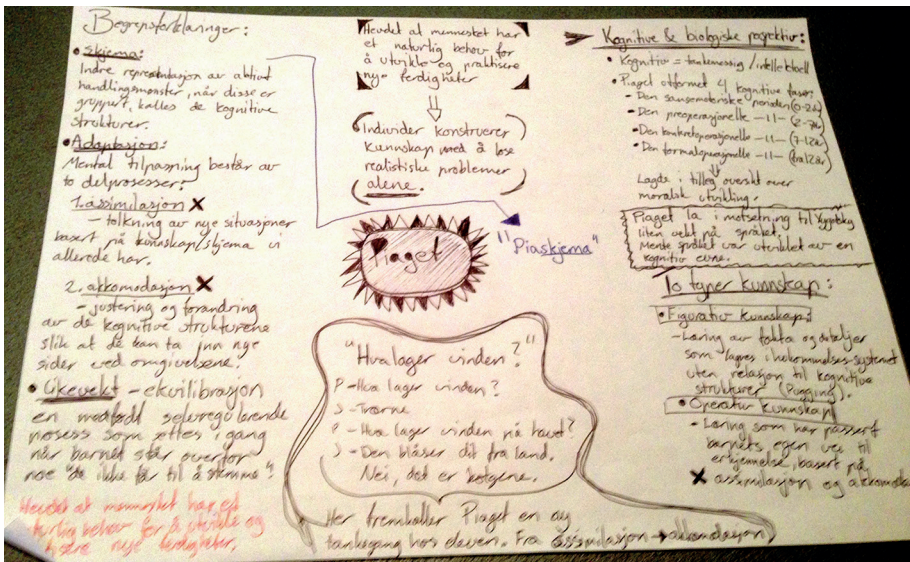 Begrepsforklaringer:
• Skjema:
Indre representasjon av aktivt
handlingsmønster, når disse er
gruppert, kalles de kognitive
strukturer.
• Adaptasjon:
Mental tilpasning består av
to delprosesser:
1. assimilasjon X
- tolkning av nye situasjoner
basert på kunnskap/skjema vi
allerede har.
2. akkomodasjon X
- justering og forandring
av de kognitive strukturene
slik at de kan ta inn nye
sider ved omgivelsene.
• Likevekt - ekvilibrasjon
en medfødt selvregulerende
prosess som settes i gang
når barnet står overfor
noe "de ikke får til å stemme".
Hevdet at mennesket har et
naturlig behov for å utvikle og
nye ferdigheter.
Hevdet at mennesket har
et naturlig behov for
å utvikle og praktisere
nye ferdigheter
Individer konstruerer
kunnskap med å løse
realistiske problemer
alene.
Piaget
"Piaskjema"
"Hva lager vinden?"
P - Hva lager vinden?
J - Trærne
P - Hva lager vinden på havet?
J - Den blåser dit fra land.
Nei, det er bølgene.
Her fremkaller Piaget en ny
tankegang hos eleven. Fra assimilasjon → akkomodasjon
Kognitive & biologiske perspektiv:
• Kognitiv = tankemessig / intellektuell
• Piaget utformet 4 kognitive faser:
- Den sansemotoriske perioden (0-2år)
- Den preoperasjonelle -11- (2-7år)
- Den konkretoperasjonelle -11- (7-12år)
• Den formaloperasjonelle -11- (fra 12år)
Lagde i tillegg oversikt over
moralsk utvikling.
Piaget la i motsetning til Vygotsky
liten vekt på språket.
Mente språket var utviklet av en
kognitiv evne.
To typer kunnskap:
• Figurativ kunnskap:
- Læring av fakta og detaljer
som lagres i hukommelses-systemet
uten relasjon til kognitive
strukturer (Pugging).
• Operativ kunnskap
- Læring som har passert
barnets egen vei til
erkjennelse, basert på
X assimilasjon og akkomodasjon